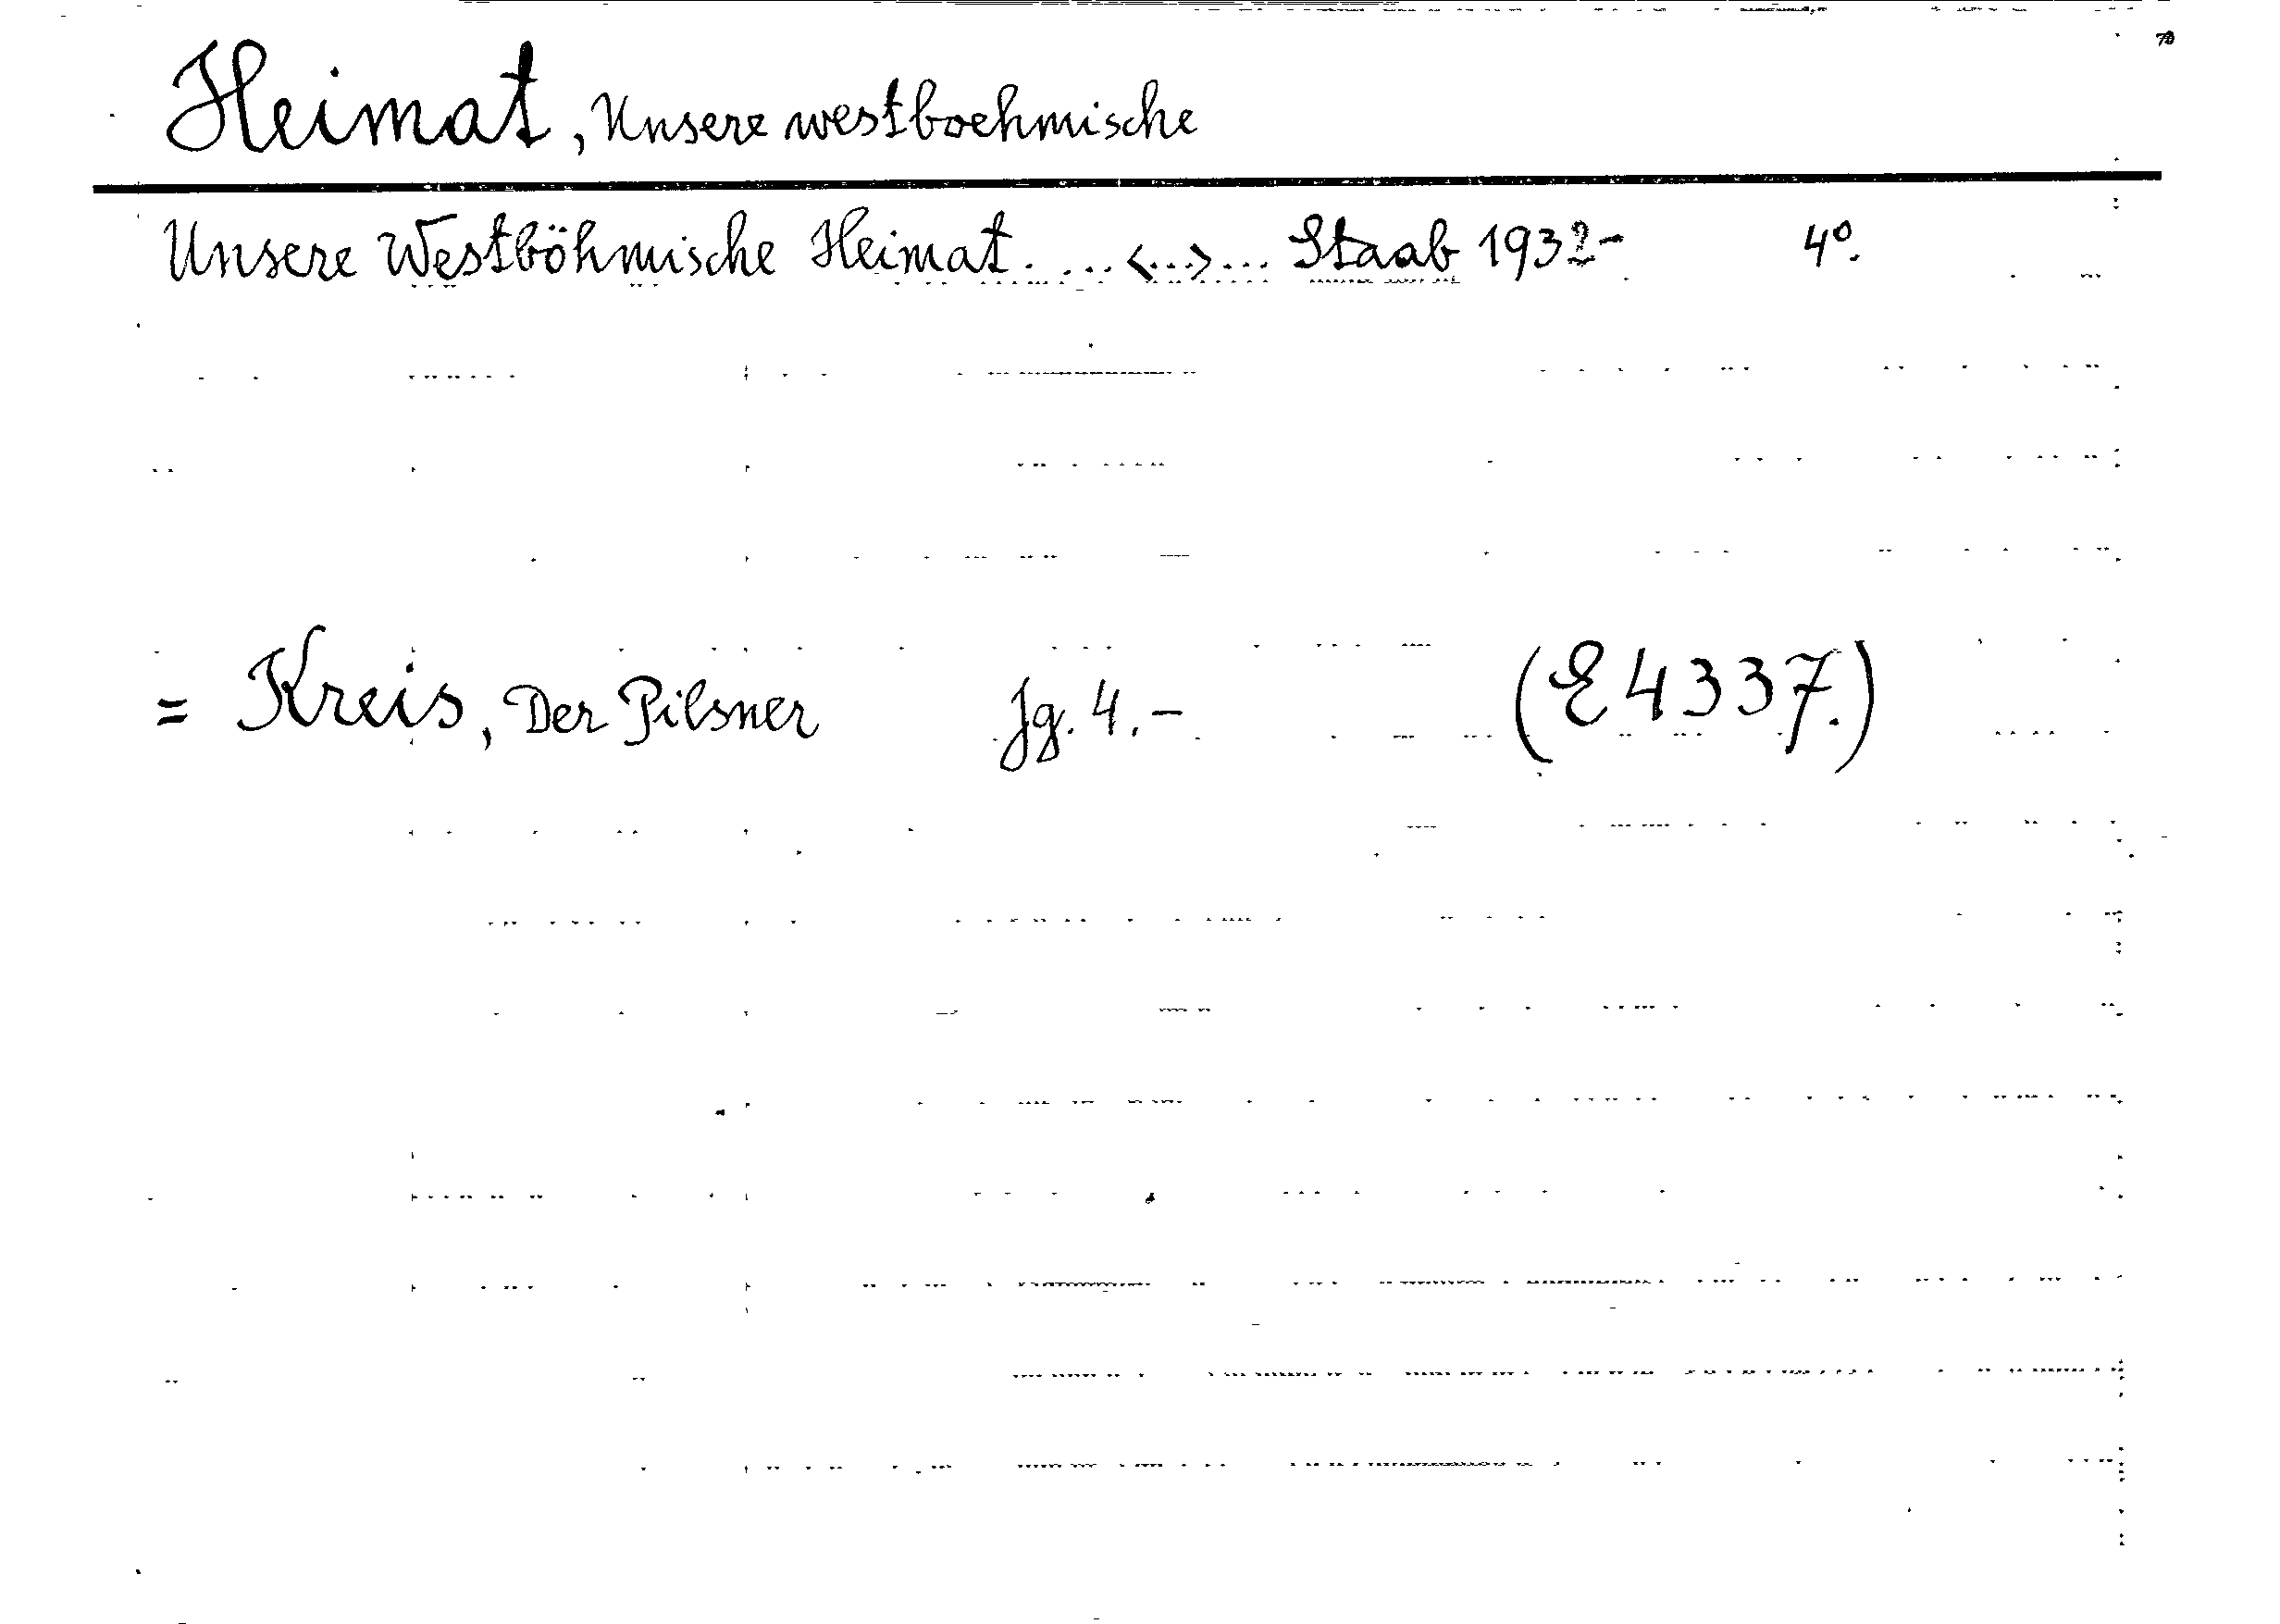 Heimat, Unsere westboehmische
Unsere Westböhmische Heimat. ... <...> ... Staab 1932- 4°.
= Kreis, Der Pilsner Jg. 4.- (E 4337.)